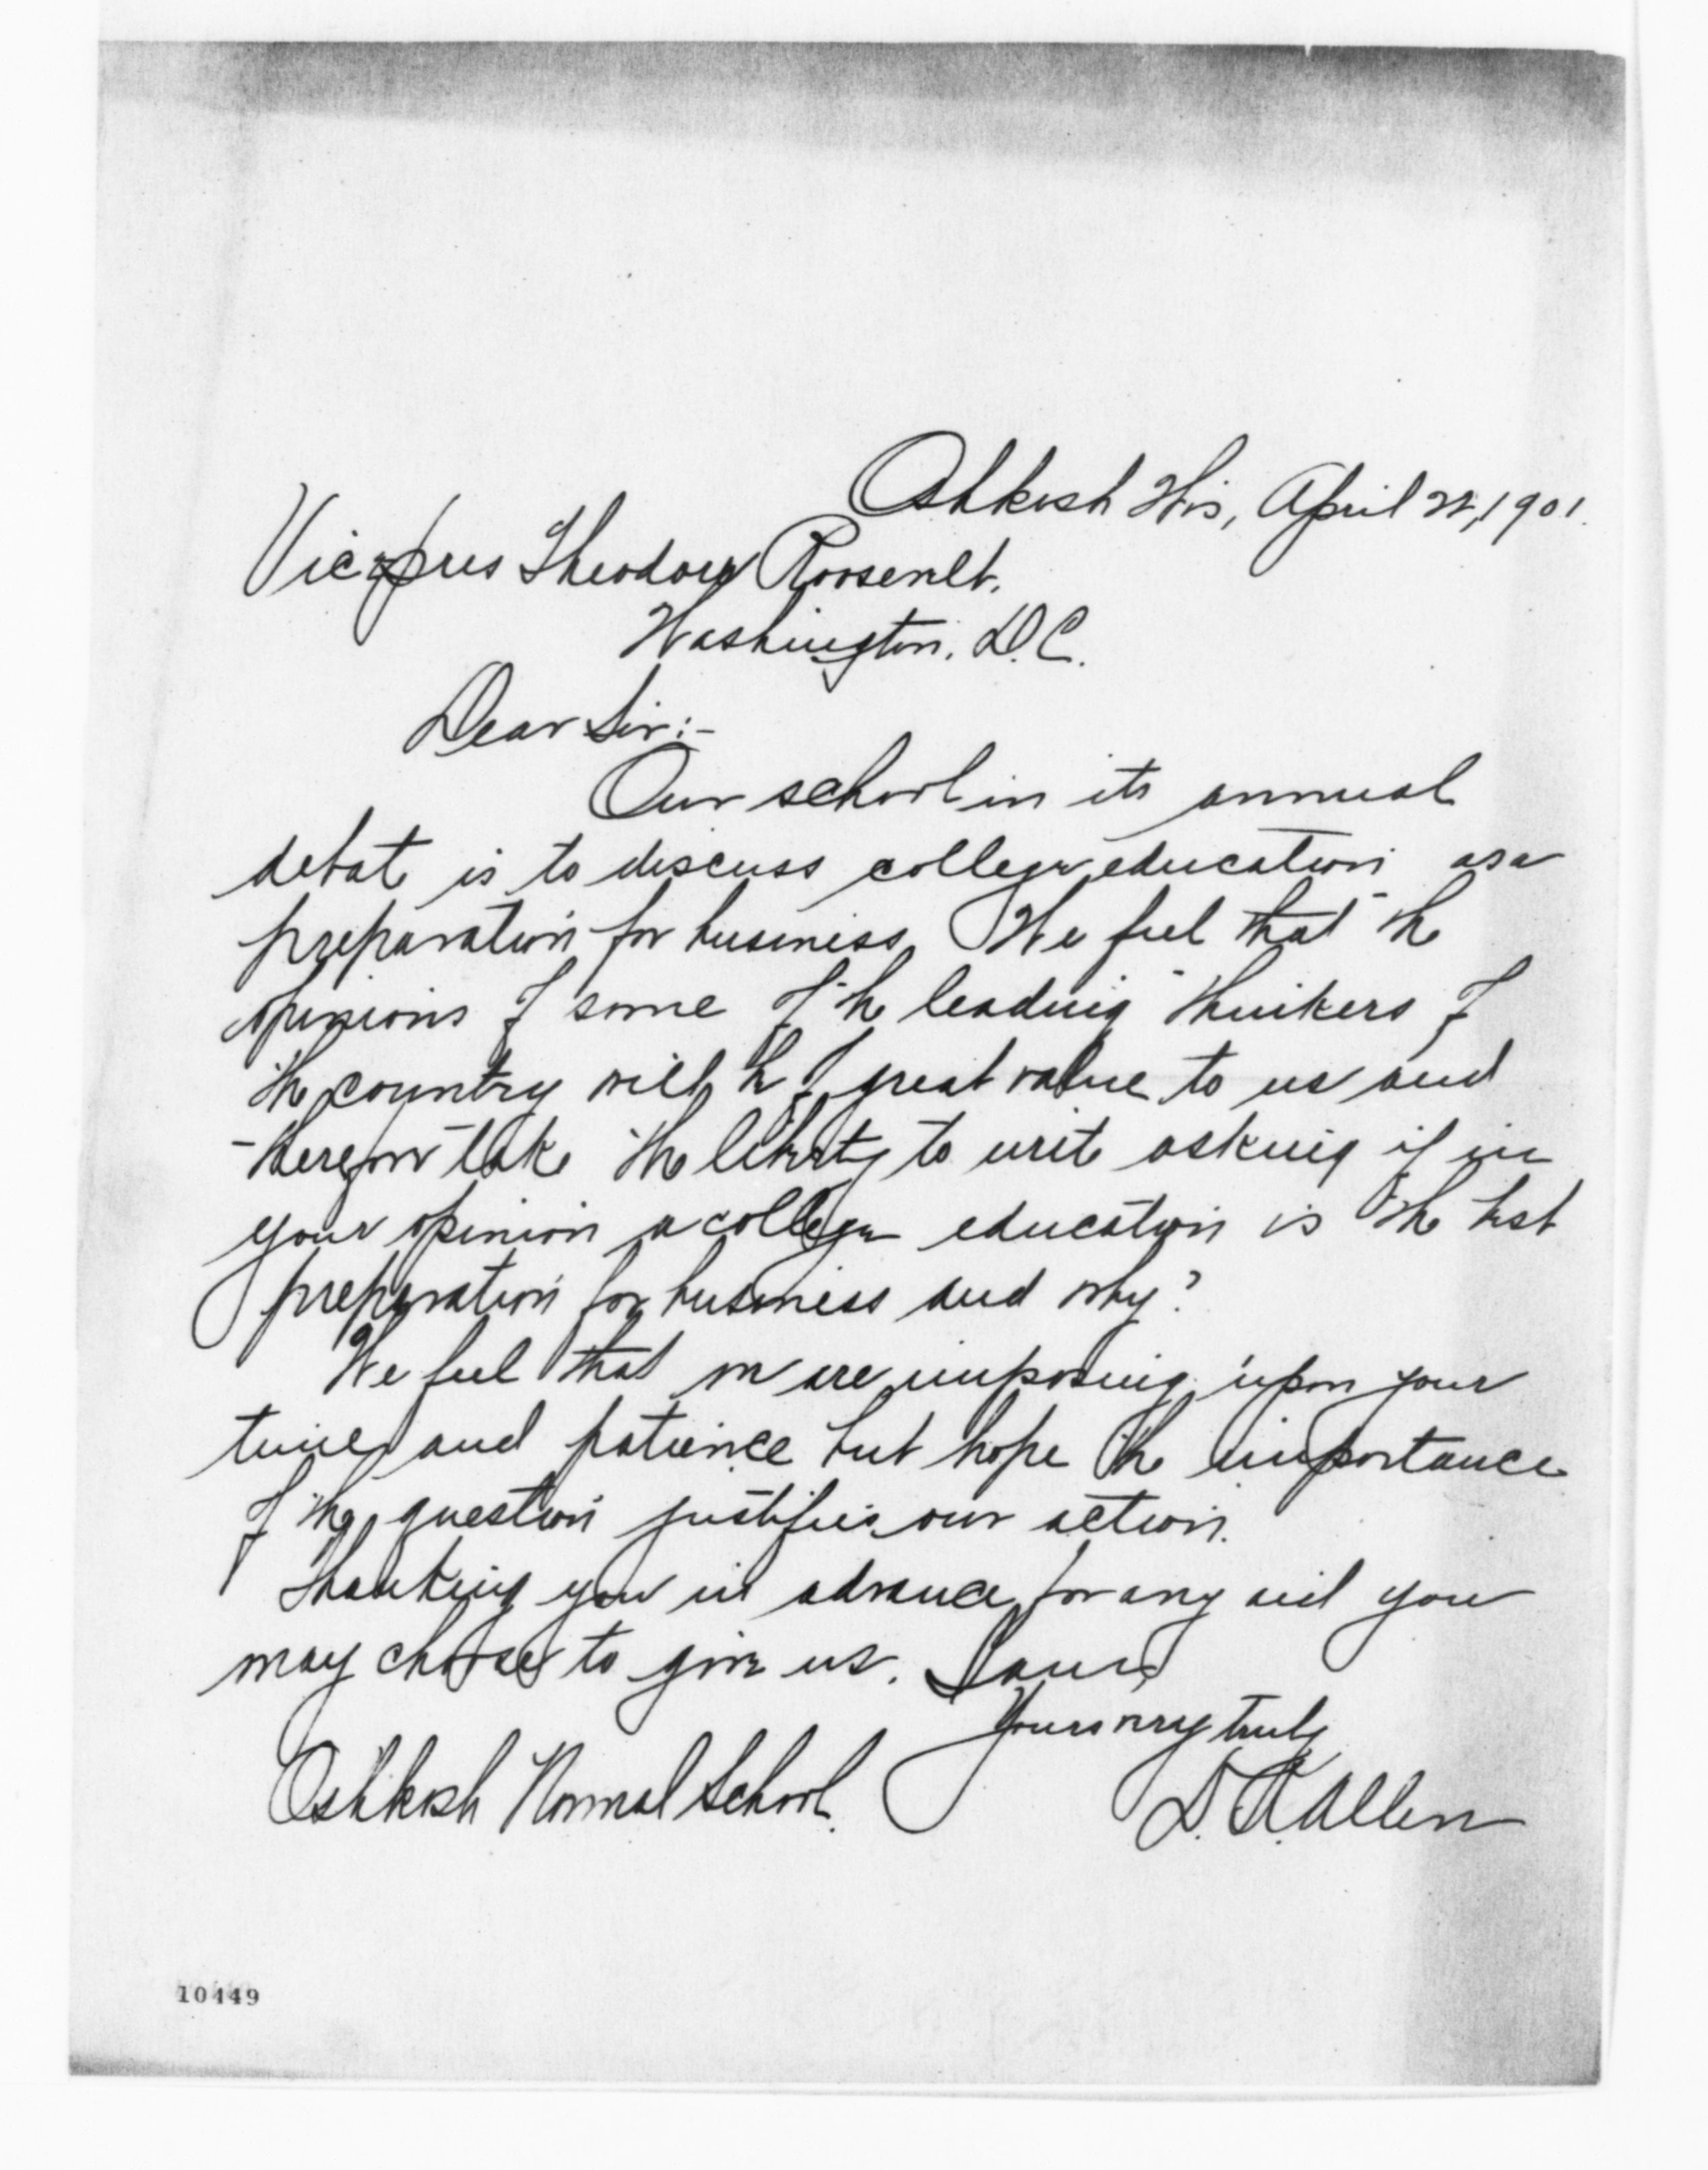 Oshkosh Wis, April 22, 1901.
Vice pres Theodore Roosevelt.
Washington. D.C.
Dear Sir:-
Our school in its annual
debate is to discuss college education as a
preparation for business. We feel that the
opinions of some of the leading thinkers of
the country will be of great value to us and
therefore take the liberty to write asking if in
your opinion a college education is the best
preparation for business and why?
We feel that we are imposing upon your
time and patience but hope the importance
of the question justifies our action.
Thanking you in advance for any aid you
may choose to give us. I am,
Yours very truly
Oshkosh Normal School. D. A. Allen
10449